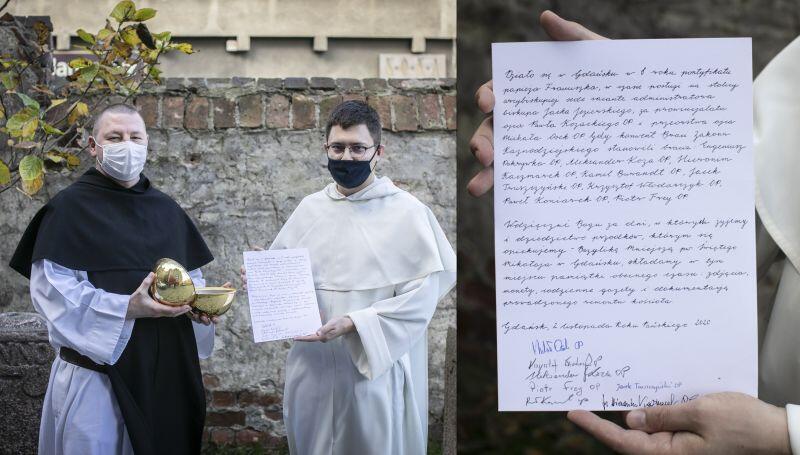 Działo się w Gdańsku w 8 roku pontyfikatu
papieża Franciszka, w czasie posługi na stolicy
arcybiskupiej sede vacante administratora
biskupa Jacka Jezierskiego, za prowincjalatu
ojca Pawła Kozackiego OP i przeorstwa ojca
Michała Osek OP. Gdy konwent Braci Zakonu
Kaznodziejskiego stanowili bracia: Eugeniusz
Pokrywka OP, Aleksander Koza OP, Hieronim
Kaczmarek OP, Kamil Burandt OP, Jacek
Truszczyński OP, Krzysztof Włodarczyk OP,
Paweł Koniarek OP, Piotr Frey OP
Wdzięczni Bogu za dni, w których żyjemy
i dziedzictwo przodków, którym się
opiekujemy - Bazyliką Mniejszą pw. Świętego
Mikołaja w Gdańsku, składamy w tym
miejscu pamiątki obecnego czasu: zdjęcia,
monety, codzienne gazety i dokumentację
prowadzonego remontu kościoła.
Gdańsk, 2 listopada Roku Pańskiego 2020
OP
Krzysztof OP
Aleksander Koza OP
Piotr Frey OP Jacek Truszczyński OP